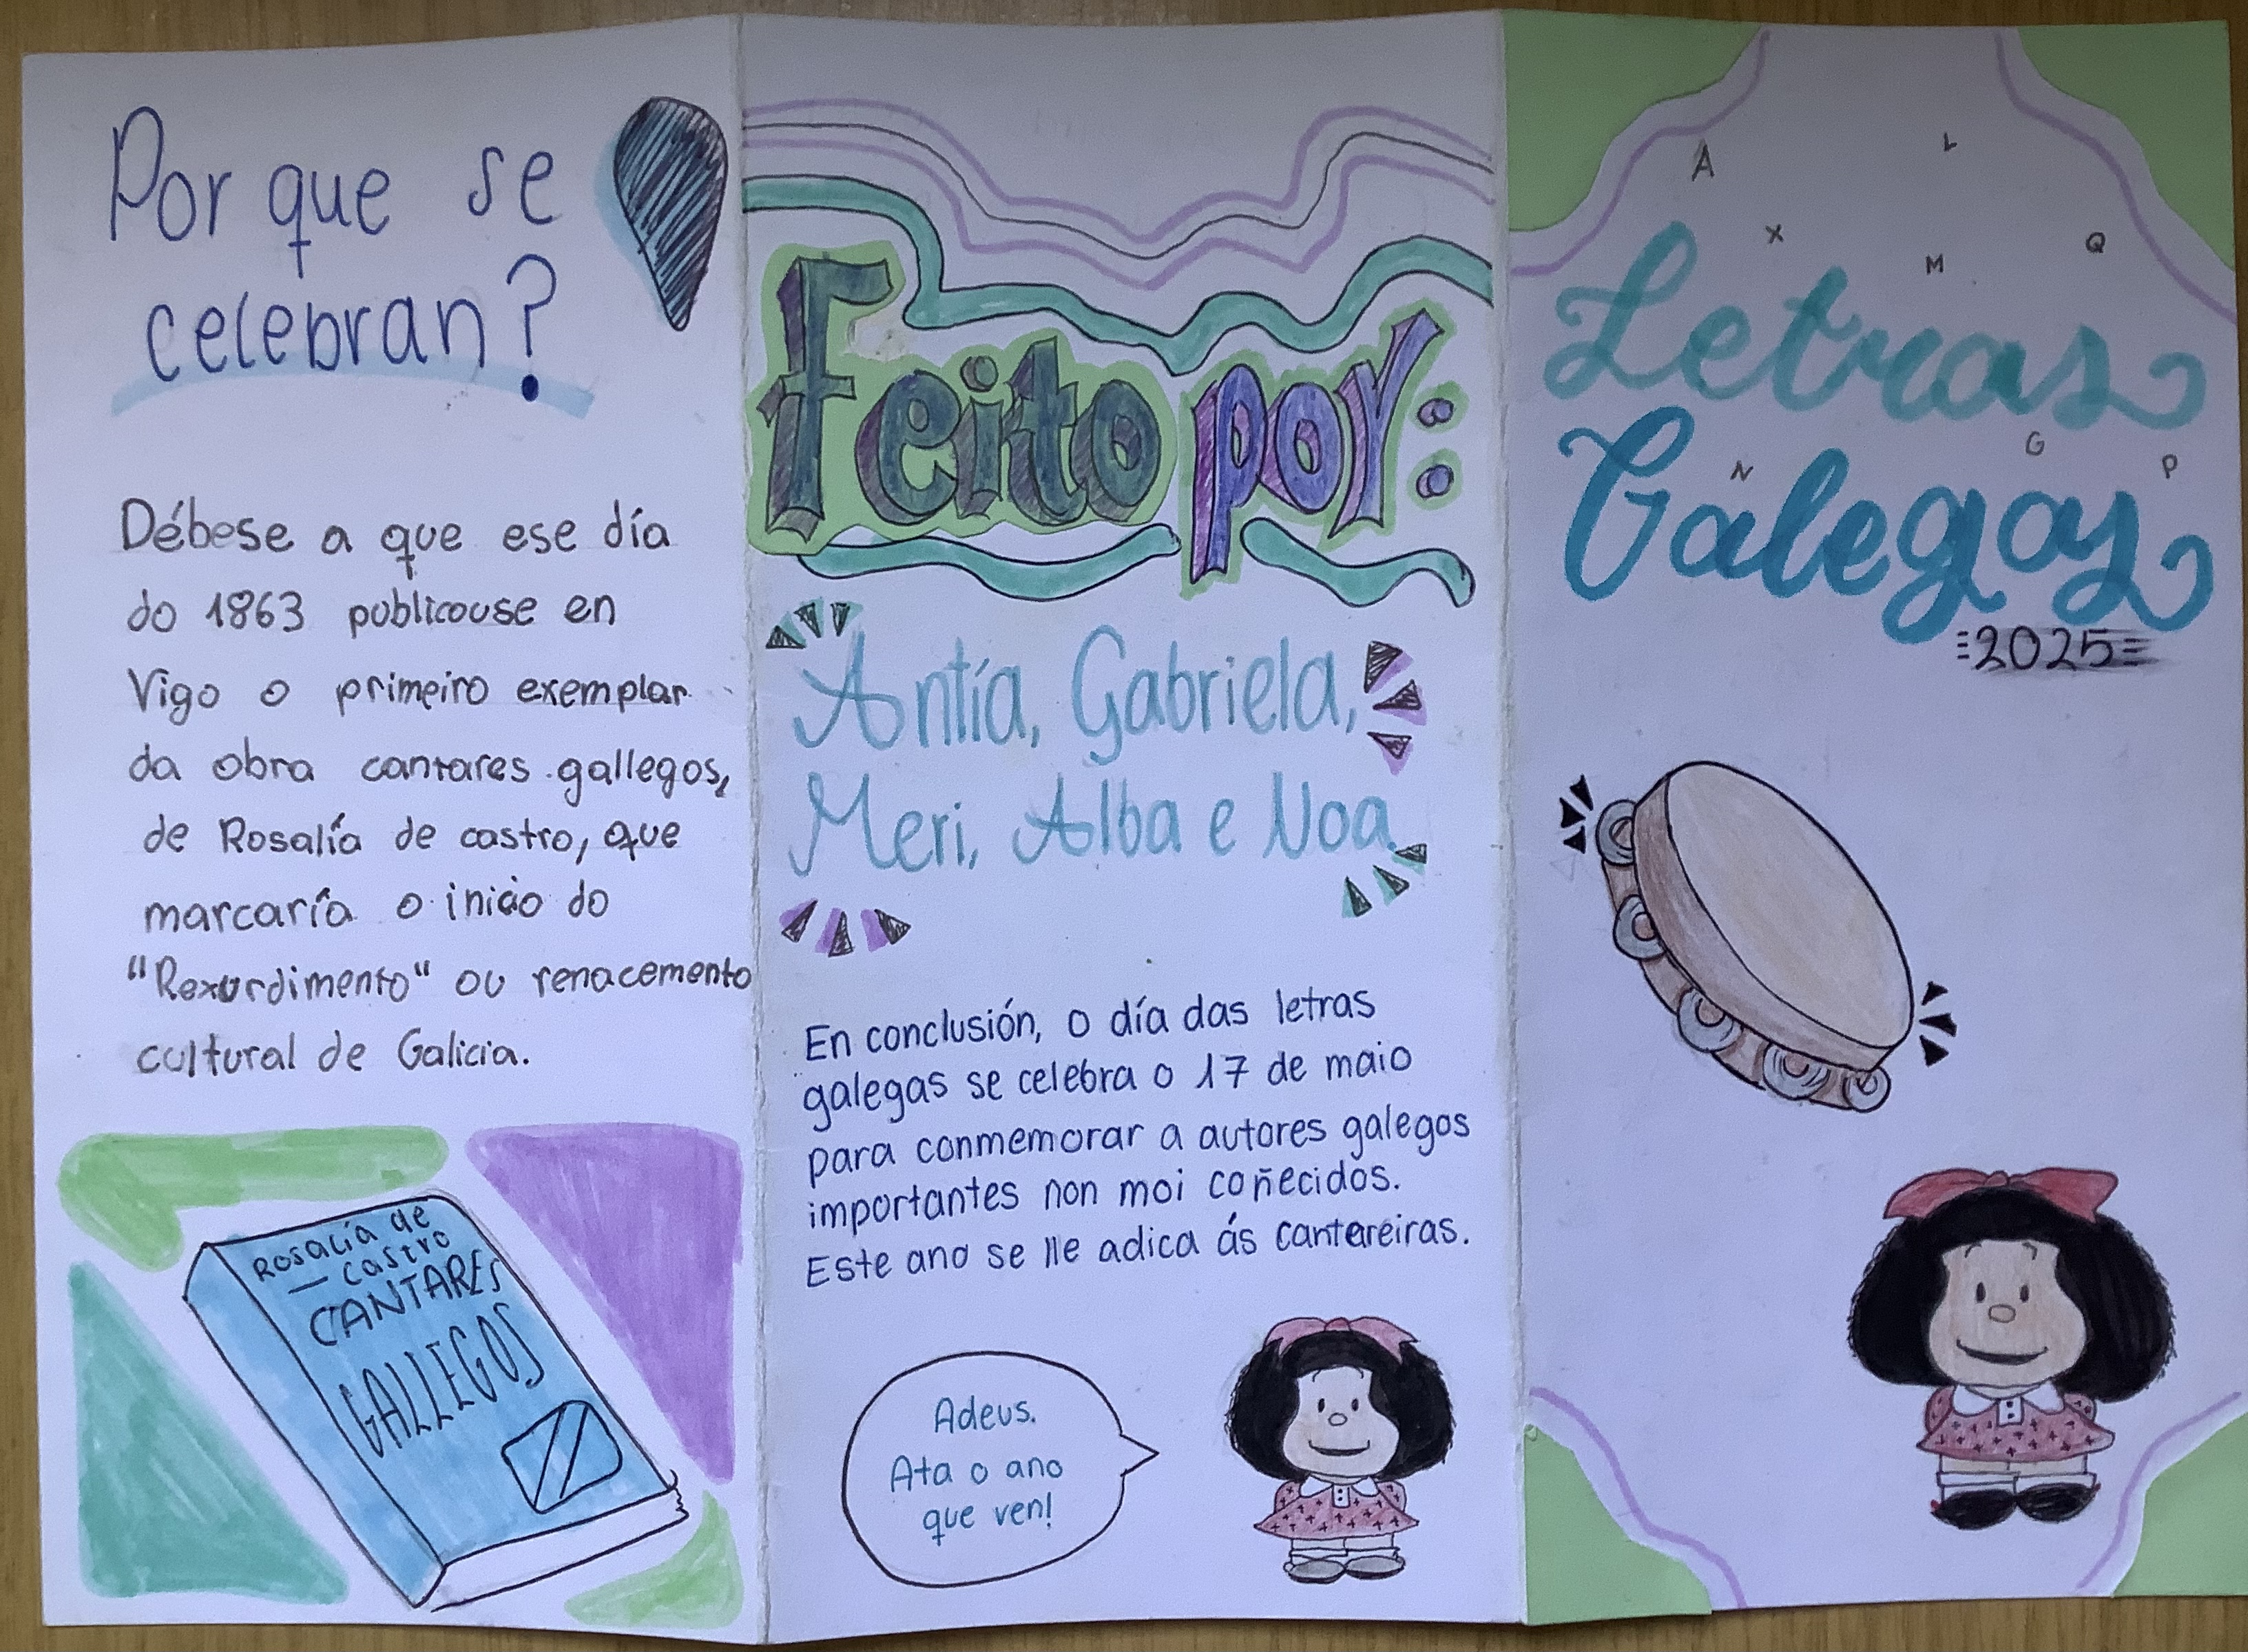 Por que se
celebran?
Débese a que ese día
do 1863 publicouse en
Vigo o primeiro exemplar
da obra cantares gallegos,
de Rosalía de castro, que
marcaría o inicio do
"Rexurdimento" ou renacemento
cultural de Galicia.
Rosalía de
Castro
CANTARES
GALLEGOS
Feito por:
Antía, Gabriela,
Meri, Alba e Noa.
En conclusión, o día das letras
galegas se celebra o 17 de maio
para conmemorar a autores galegos
importantes non moi coñecidos.
Este ano se lle adica ás cantareiras.
Adeus.
Ata o ano
que ven!
A
L
X
M
Q
Letras
G
N
P
Galegas
2025